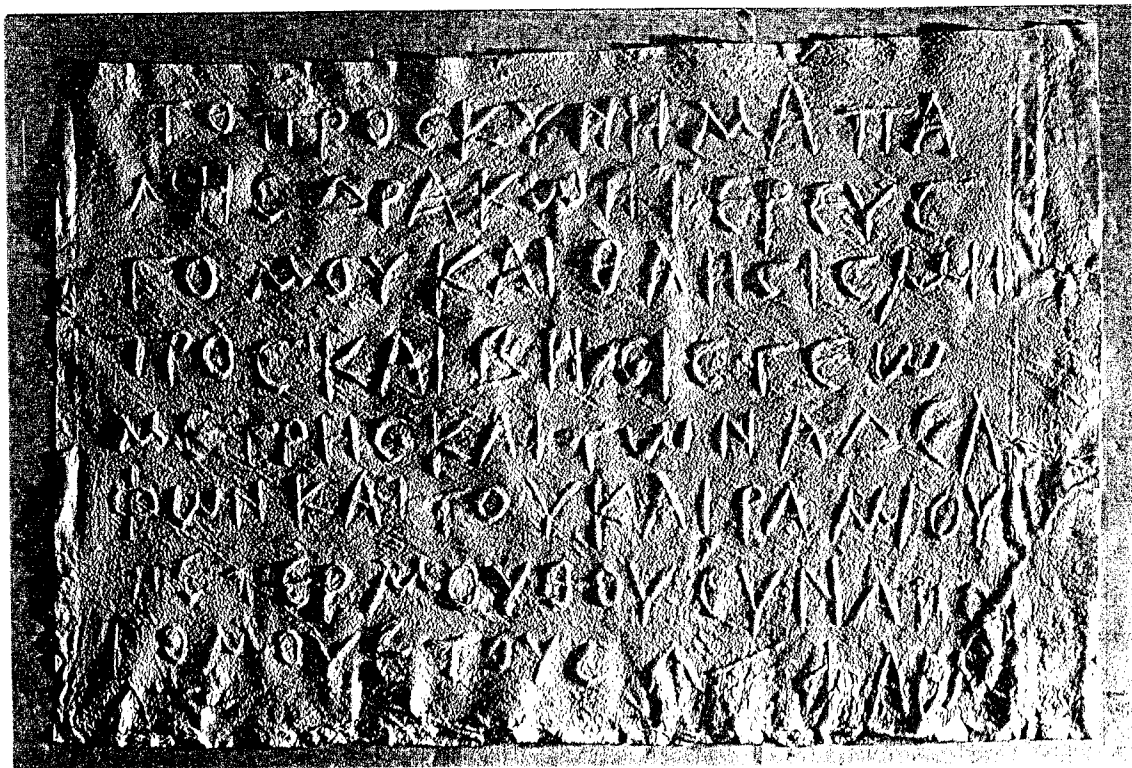 ΤΟ ΠΡΟϹΚΥΝΗΜΑ ΠΑ
ΛΗϹ ΔΡΑΚΩΝ ΙΕΡΕΥϹ
ΓΟΜΟΥ ΚΑΙ ΘΑΗϹΙϹ ΜΗ
ΤΡΟϹ ΚΑΙ ΒΗϹΙϹ ΓΕΩ
ΜΕΤΡΗϹ ΚΑΙ ΤΩΝ ΑΔΕΛ
ΦΩΝ ΚΑΙ ΤΟΥ ΚΑΙΡΑΜΙΟΥ
ΠΕΤΕΡΜΟΥΘΟΥ ϹΥΝΑΠΟ
ΓΟΜΟΥ ΕΤΟΥϹ